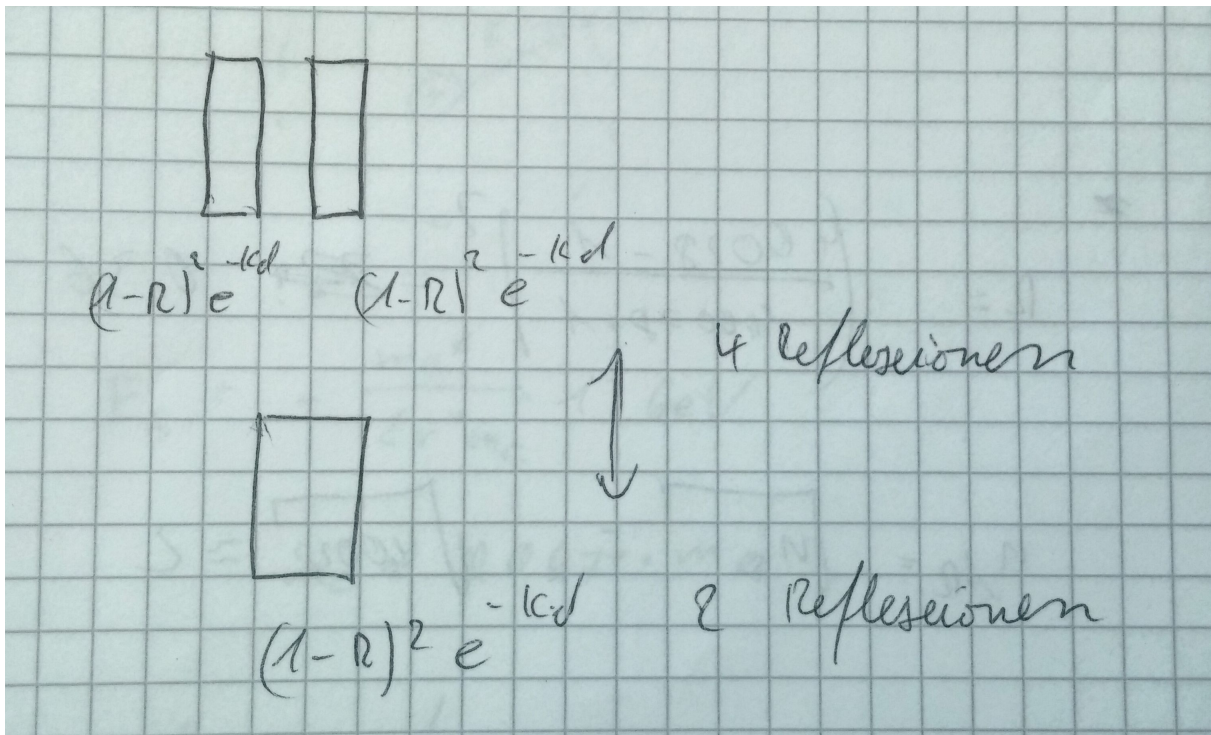 (1-R)² e^-Kd (1-R)² e^-Kd
4 Reflexionen
(1-R)² e^-Kd 2 Reflexionen